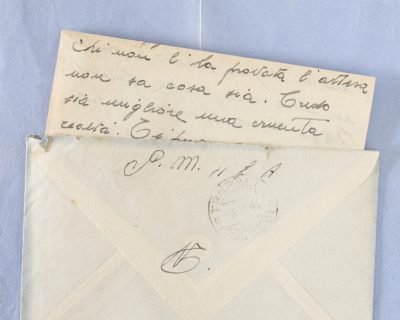 chi non l'ha provata l'attesa
non sa cosa sia. Credo
sia migliore una cruenta
realtà.
P. M.